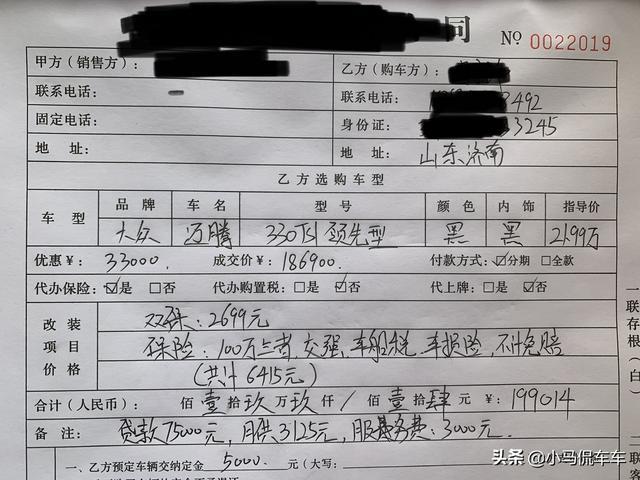 同 NO 0022019
甲方（销售方）： 乙方（购车方）：
联系电话： 联系电话： 3492
固定电话： 身份证： 33245
地 址： 地 址： 山东济南
乙方选购车型
车 型 品 牌 车 名 型 号 颜 色 内 饰 指导价
大众 迈腾 330TSI 领先型 黑 黑 21.99万
优惠￥： 33000. 成交价￥： 186900. 付款方式：☑分期 □全款
代办保险：☑是 □否 代办购置税：□是 ☑否 代上牌：□是 ☑否
改 装 双保：2699元
项 目 保险：100万三者，交强，车船税，车损险，不计免赔
价 格 （共计6415元）
合计（人民币）： 佰 壹 拾 玖 万 玖 仟 / 佰 壹 拾 肆 元 ￥： 199014
备 注： 贷款75000元，月供3125元，服务费：3000元.
一、乙方预定车辆交纳定金 5000 元（大写：
一联存根（白）
头条 @小马侃车车